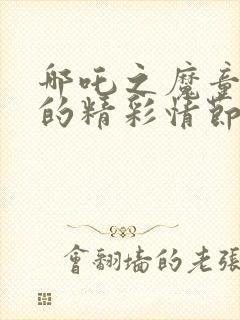 哪吒之魔童
的精彩情節
會翻墻的老張